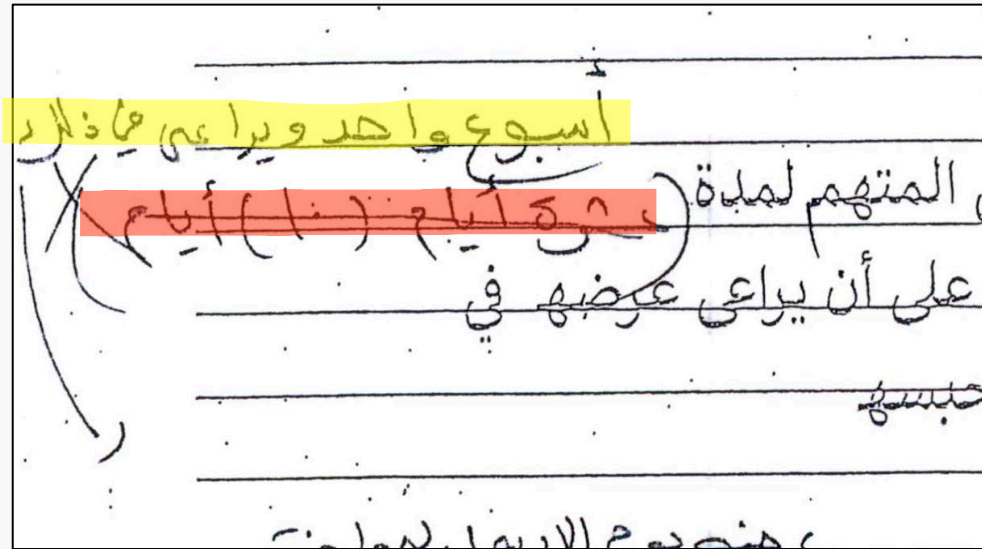 أسبوع واحد ويراعى في ذلك
المتهم لمدة عشرة أيام (١٠) أيام
على أن يراعى عرضهم في
حبسه
يوم الأربعاء